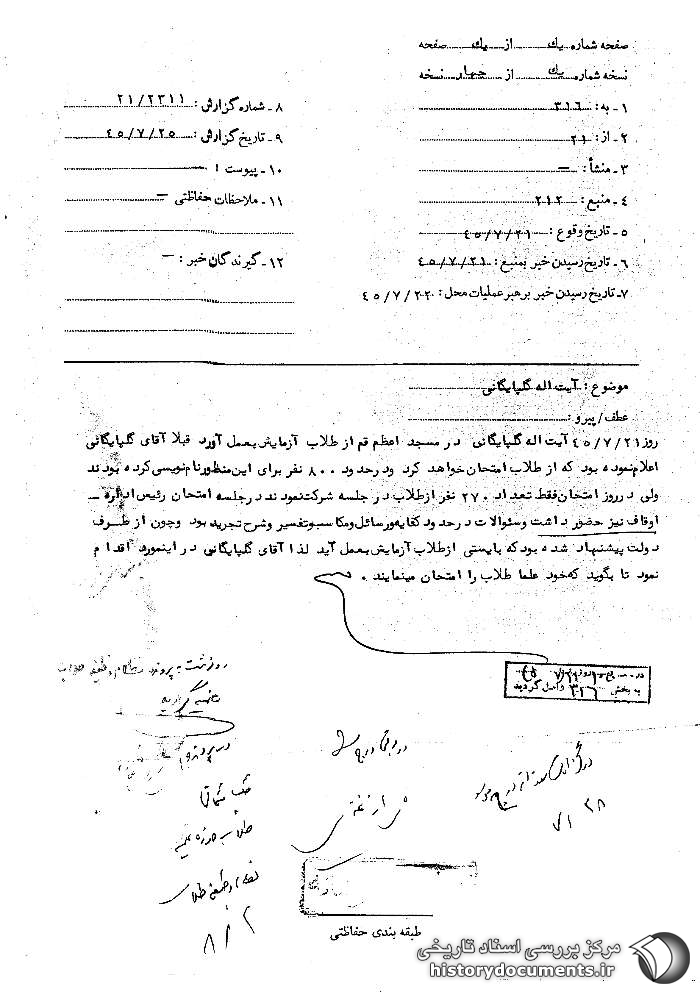 صفحه شماره يك از يك صفحه
نسخه شماره يك از چهار نسخه
١ - به : ٣١٦
٢ - از : ٢١
٣ - منشأ : —
٤ - منبع : ٢١٢
٥ - تاريخ وقوع : ٤٥/٧/٢١
٦ - تاريخ رسيدن خبر بمنبع : ٤٥/٧/٢١
٧ - تاريخ رسيدن خبر برهبر عمليات محل : ٤٥/٧/٢٢
٨ - شماره گزارش : ٢١/٢٣١١
٩ - تاريخ گزارش : ٤٥/٧/٢٥
١٠ - پيوست :
١١ - ملاحظات حفاظتی —
١٢ - گيرندگان خبر : —
موضوع : آيت اله گلپايگانی
عطف / پيرو :
روز ٤٥/٧/٢١ آيت اله گلپايگانی در مسجد اعظم قم از طلاب آزمايش بعمل آورد قبلا آقای گلپايگانی
اعلام نموده بود كه از طلاب امتحان خواهد كرد ودرحدود ٨٠٠ نفر برای اين منظور نام نويسی كرده بودند
ولی درروز امتحان فقط تعداد ٢٧٠ نفر از طلاب در جلسه شركت نمودند در جلسه امتحان رئيس اداره —
اوقاف نيز حضور داشت وسئوالات در حدود كفايه ورسائل ومكاسب وتفسير وشرح تجريد بود وچون از طرف
دولت پيشنهاد شده بود كه بايستی از طلاب آزمايش بعمل آيد لذا آقای گلپايگانی در اينمورد اقدام
نمود تا بگويد كه خود علما طلاب را امتحان مينمايند .
به بخش ٣١٦ واصل گرديد
طلاب حوزه علميه
٧/٢٨
٨/٢
طبقه بندی حفاظتی
مرکز بررسی اسناد تاریخی
historydocuments.ir